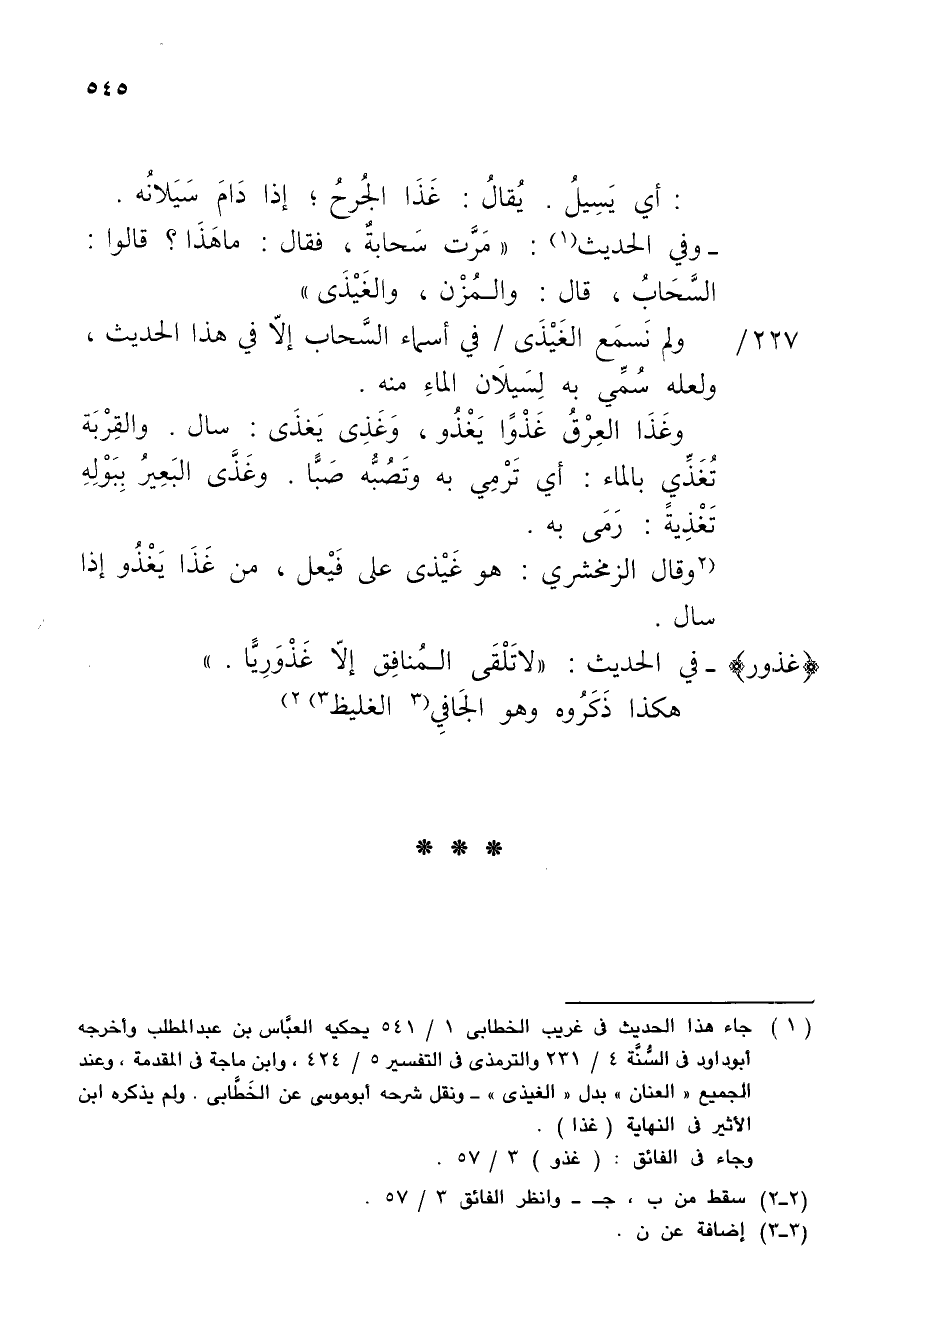 ٥٤٥
: أي يَسِيلُ . يُقالُ : غَذَا الجُرحُ ؛ إذا دَامَ سَيَلانُه .
ـ وفي الحديث(١) : « مَرَّت سَحابةٌ ، فقال : ماهَذَا ؟ قالوا :
السَّحَابُ ، قال : والـمُزْن ، والغَيْذَى »
٢٢٧/ ولم نَسمَع الغَيْذَى / في أسماء السَّحاب إلاّ في هذا الحديث ،
ولعله سُمِّي به لِسَيلَان الماءِ منه .
وغَذَا العِرْقُ غَذْوًا يَغْذُو ، وَغَذِى يَغذَى : سال . والقِرْبَة
تُغَذِّي بالماء : أي تَرْمِي به وتَصُبُّه صَبًّا . وغَذَّى البَعِيرُ بِبَوْلِهِ
تَغْذِيةً : رَمَى به .
(٢وقال الزمخشري : هو غَيْذى على فَيْعل ، من غَذَا يَغْذُو إذا
سال .
﴿غذور﴾ ـ في الحديث : «لاتَلْقَى الـمُنافِق إلاّ غَذْوَرِيًّا . »
هكذا ذَكَرُوه وهو الجَافِي(٣ الغليظ٣) ٢)
* * *
( ١ ) جاء هذا الحديث فى غريب الخطابى ١ / ٥٤١ يحكيه العبَّاس بن عبدالمطلب وأخرجه
أبوداود فى السُّنَّة ٤ / ٢٣١ والترمذى فى التفسير ٥ / ٤٢٤ ، وابن ماجة فى المقدمة ، وعند
الجميع « العنان » بدل « الغيذى » ـ ونقل شرحه أبوموسى عن الخَطَّابى . ولم يذكره ابن
الأثير فى النهاية ( غذا ) .
وجاء فى الفائق : ( غذو ) ٣ / ٥٧ .
(٢ـ٢) سقط من ب ، جـ ـ وانظر الفائق ٣ / ٥٧ .
(٣ـ٣) إضافة عن ن .